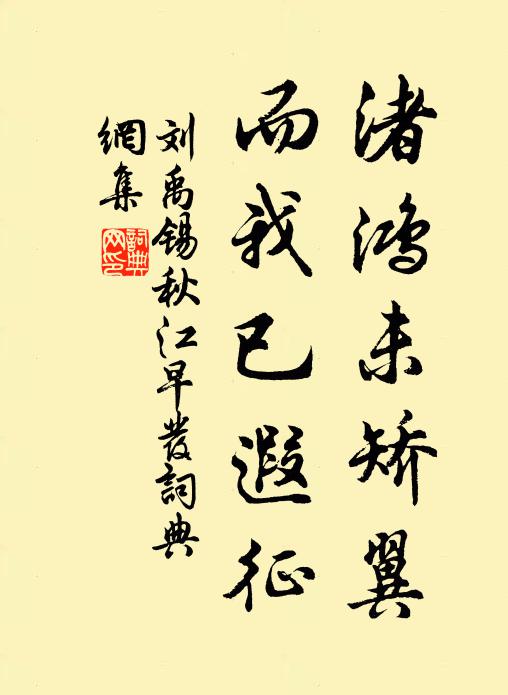 渚鸿未矫翼
而我已遐征
刘禹锡秋江早發詞典
網集
詞典
网印